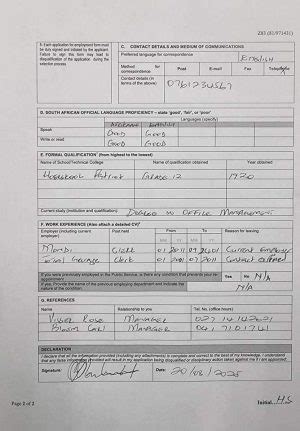 Z83 (81/971431)
3. Each application for employment form must be duly signed and initialed by the applicant. Failure to sign this form may lead to disqualification of the application during the selection process
C. CONTACT DETAILS AND MEDIUM OF COMMUNICATIONS
Preferred language for correspondence
ENGLISH
Method for correspondence
Post E-mail Fax Telephone
Contact details (in terms of the above)
0761234567
D. SOUTH AFRICAN OFFICIAL LANGUAGE PROFICIENCY – state 'good', 'fair', or 'poor'
Languages (specify)
AFRIKAANS ENGLISH
Speak GOOD GOOD
Write or read GOOD GOOD
E. FORMAL QUALIFICATION (from highest to the lowest)
Name of School/Technical College Name of qualification obtained Year obtained
GRADE 12
Current study (institution and qualification) DEGREE IN OFFICE MANAGEMENT
F. WORK EXPERIENCE (Also attach a detailed CV)
Employer (including current employer) Post held From To Reason for leaving
MM YY MM YY
Clerk 01 2011
Clerk 07 2011
If you were previously employed in the Public Service, is there any condition that prevents your re-appointment Yes No N/A
If yes, Provide the name of the previous employing department and indicate the nature of the condition N/A
G. REFERENCES
Name Relationship to you Tel. No. (office hours)
MANAGER
MANAGER 041 7101741
DECLARATION
I declare that all the information provided (including any attachments) is complete and correct to the best of my knowledge. I understand that any false information supplied could lead to my application being disqualified or disciplinary action taken against me if I am appointed.
Signature: Date: 20/08/2025
Page 2 of 2
Initial H.S